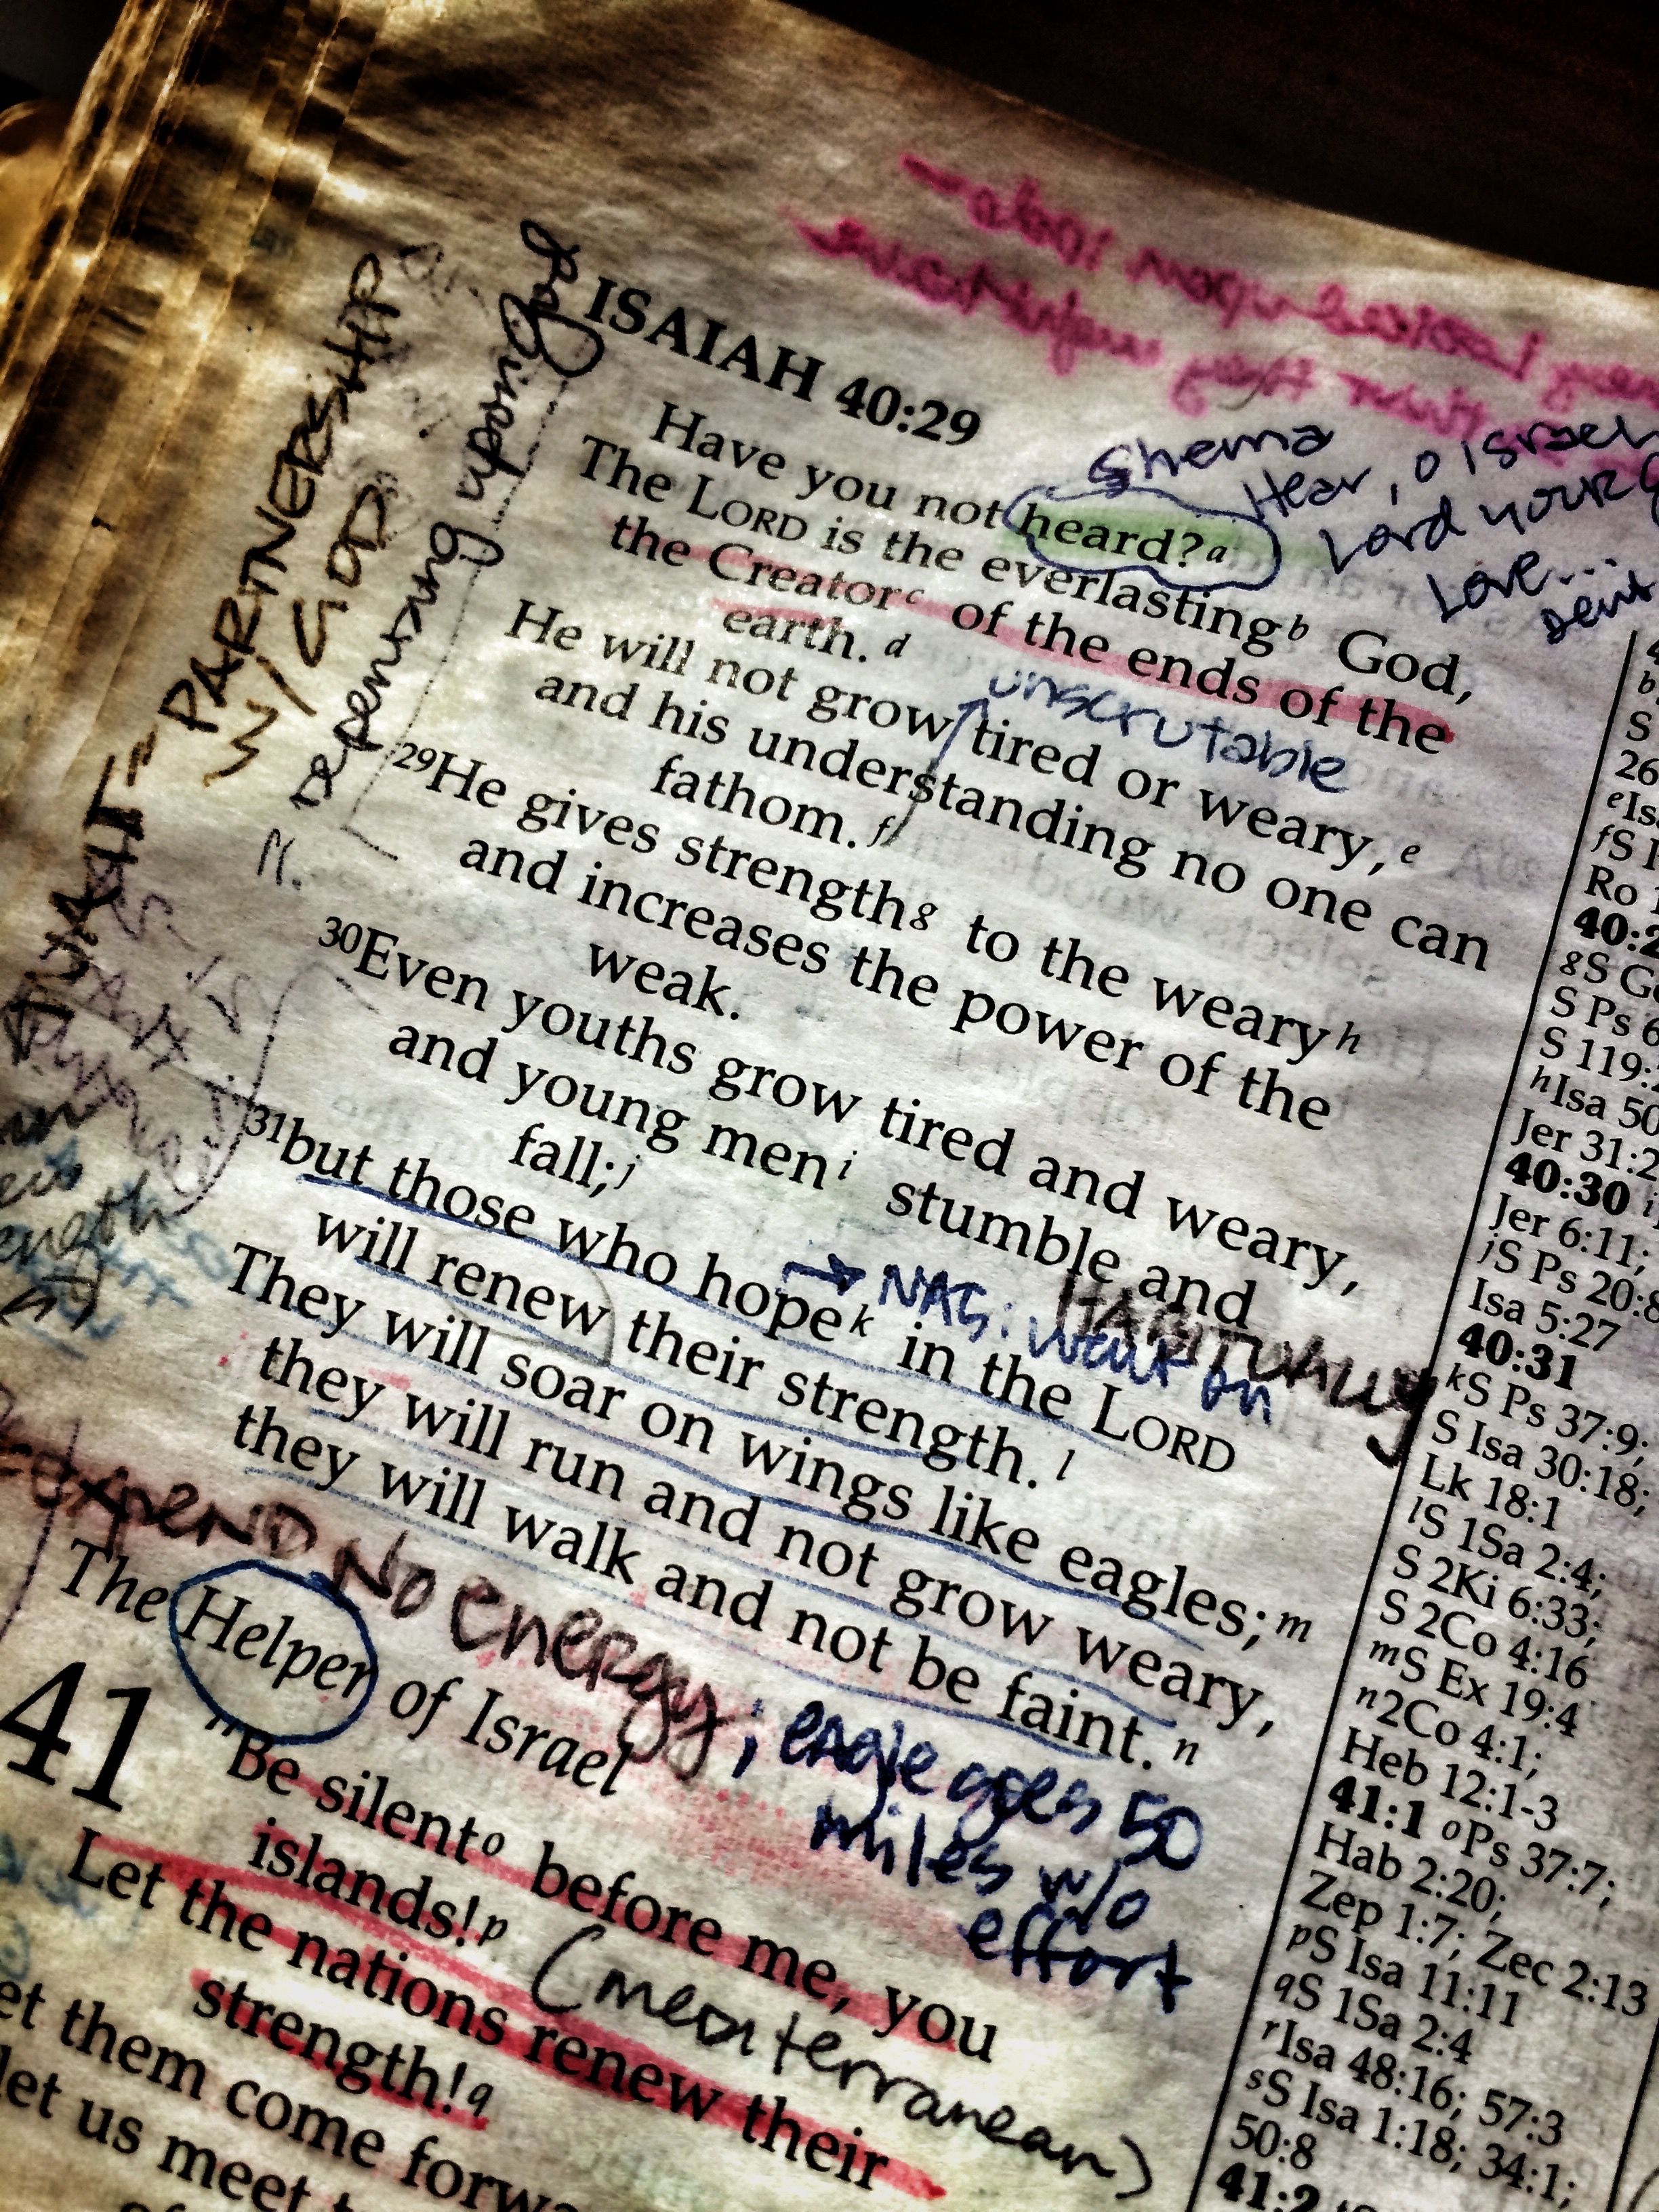 ISAIAH 40:29
Shema
Hear, O Israel
Lord your
Love...
Have you not heard?a
The LORD is the everlastingb God,
the Creatorc of the ends of the
earth.d
unscrutable
He will not grow tired or weary,e
and his understanding no one can
fathom.f
29He gives strengthg to the wearyh
and increases the power of the
weak.
30Even youths grow tired and weary,
and young meni stumble and
fall;j
31but those who hopek in the LORD
→ NAS: wait on
HABITUALLY
will renew their strength.l
They will soar on wings like eagles;m
they will run and not grow weary,
they will walk and not be faint.n
expend No energy; eagle goes 50
miles w/o
effort
The Helper of Israel
41 "Be silento before me, you
islands!p (mediterranean)
Let the nations renew their
strength!q
et them come forw
let us meet
PARTNERSHIP
W/ GOD
depending upon God
b
S
26
eIs
fS
Ro 1
40:2
gS Ge
S Ps 6
S 119:
hIsa 50
Jer 31:2
40:30 i
Jer 6:11;
jS Ps 20:8
Isa 5:27
40:31
kS Ps 37:9;
S Isa 30:18;
Lk 18:1
lS 1Sa 2:4;
S 2Ki 6:33;
S 2Co 4:16
mS Ex 19:4
n2Co 4:1;
Heb 12:1-3
41:1 oPs 37:7;
Hab 2:20;
Zep 1:7; Zec 2:13
pS Isa 11:11
qS 1Sa 2:4
rIsa 48:16; 57:3
sS Isa 1:18; 34:1;
50:8
41:2